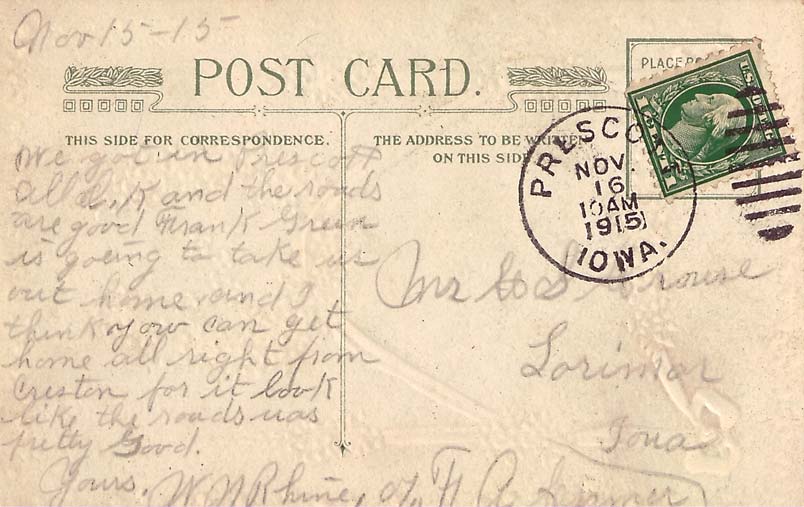 Nov 15-15
POST CARD.
PLACE
THIS SIDE FOR CORRESPONDENCE.
THE ADDRESS TO BE WRITTEN
ON THIS SIDE
PRESCO
NOV.
16
10 AM
1915
IOWA.
We got in Prescott
all O.K and the roads
are good Frank Green
is going to take us
out home and I
think yow can get
home all right from
Creston for it look
like the roads was
pretty good.
Yours. W N Rhine,
Mr
Lorimor
Iowa